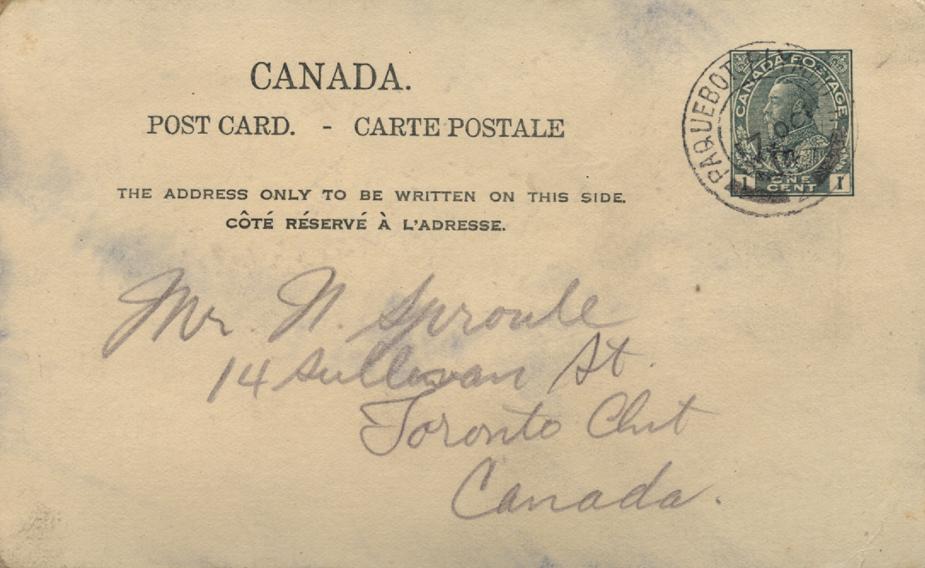 CANADA.
POST CARD. - CARTE POSTALE
CANADA POSTAGE
1 ONE CENT 1
PAQUEBOT
7 OC
THE ADDRESS ONLY TO BE WRITTEN ON THIS SIDE.
CÔTÉ RÉSERVÉ À L'ADRESSE.
Mr. N. Sproule
14 Sullivan St.
Toronto Ont
Canada.